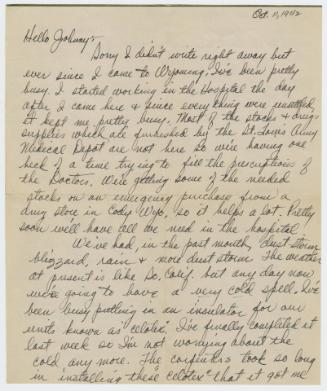 Oct. 11, 1942
Hello Johnny:
Sorry I didn't write right away but
ever since I came to Wyoming, I've been pretty
busy. I started working in the Hospital the day
after I came here & since everything were unsettled,
it kept me pretty busy. Most of the stocks & drug
supplies which are furnished by the St. Louis Army
Medical Depot are not here so we're having one
heck of a time trying to fill the prescriptions of
the Doctors. We're getting some of the needed
stocks on an emergency purchase from a
drug store in Cody Wyo, so it helps a lot. Pretty
soon we'll have all we need in the hospital.
We've had, in the past month, dust storm,
blizzard, rain & more dust storm. The weather
at present is like So. Calif. but any day now
we're going to have a very cold spell. I've
been busy putting in an insulator for our
units known as "celotex". I've finally completed it
last week so I'm not worrying about the
cold any more. The carpenters took so long
in installing these "celotex" that it got me